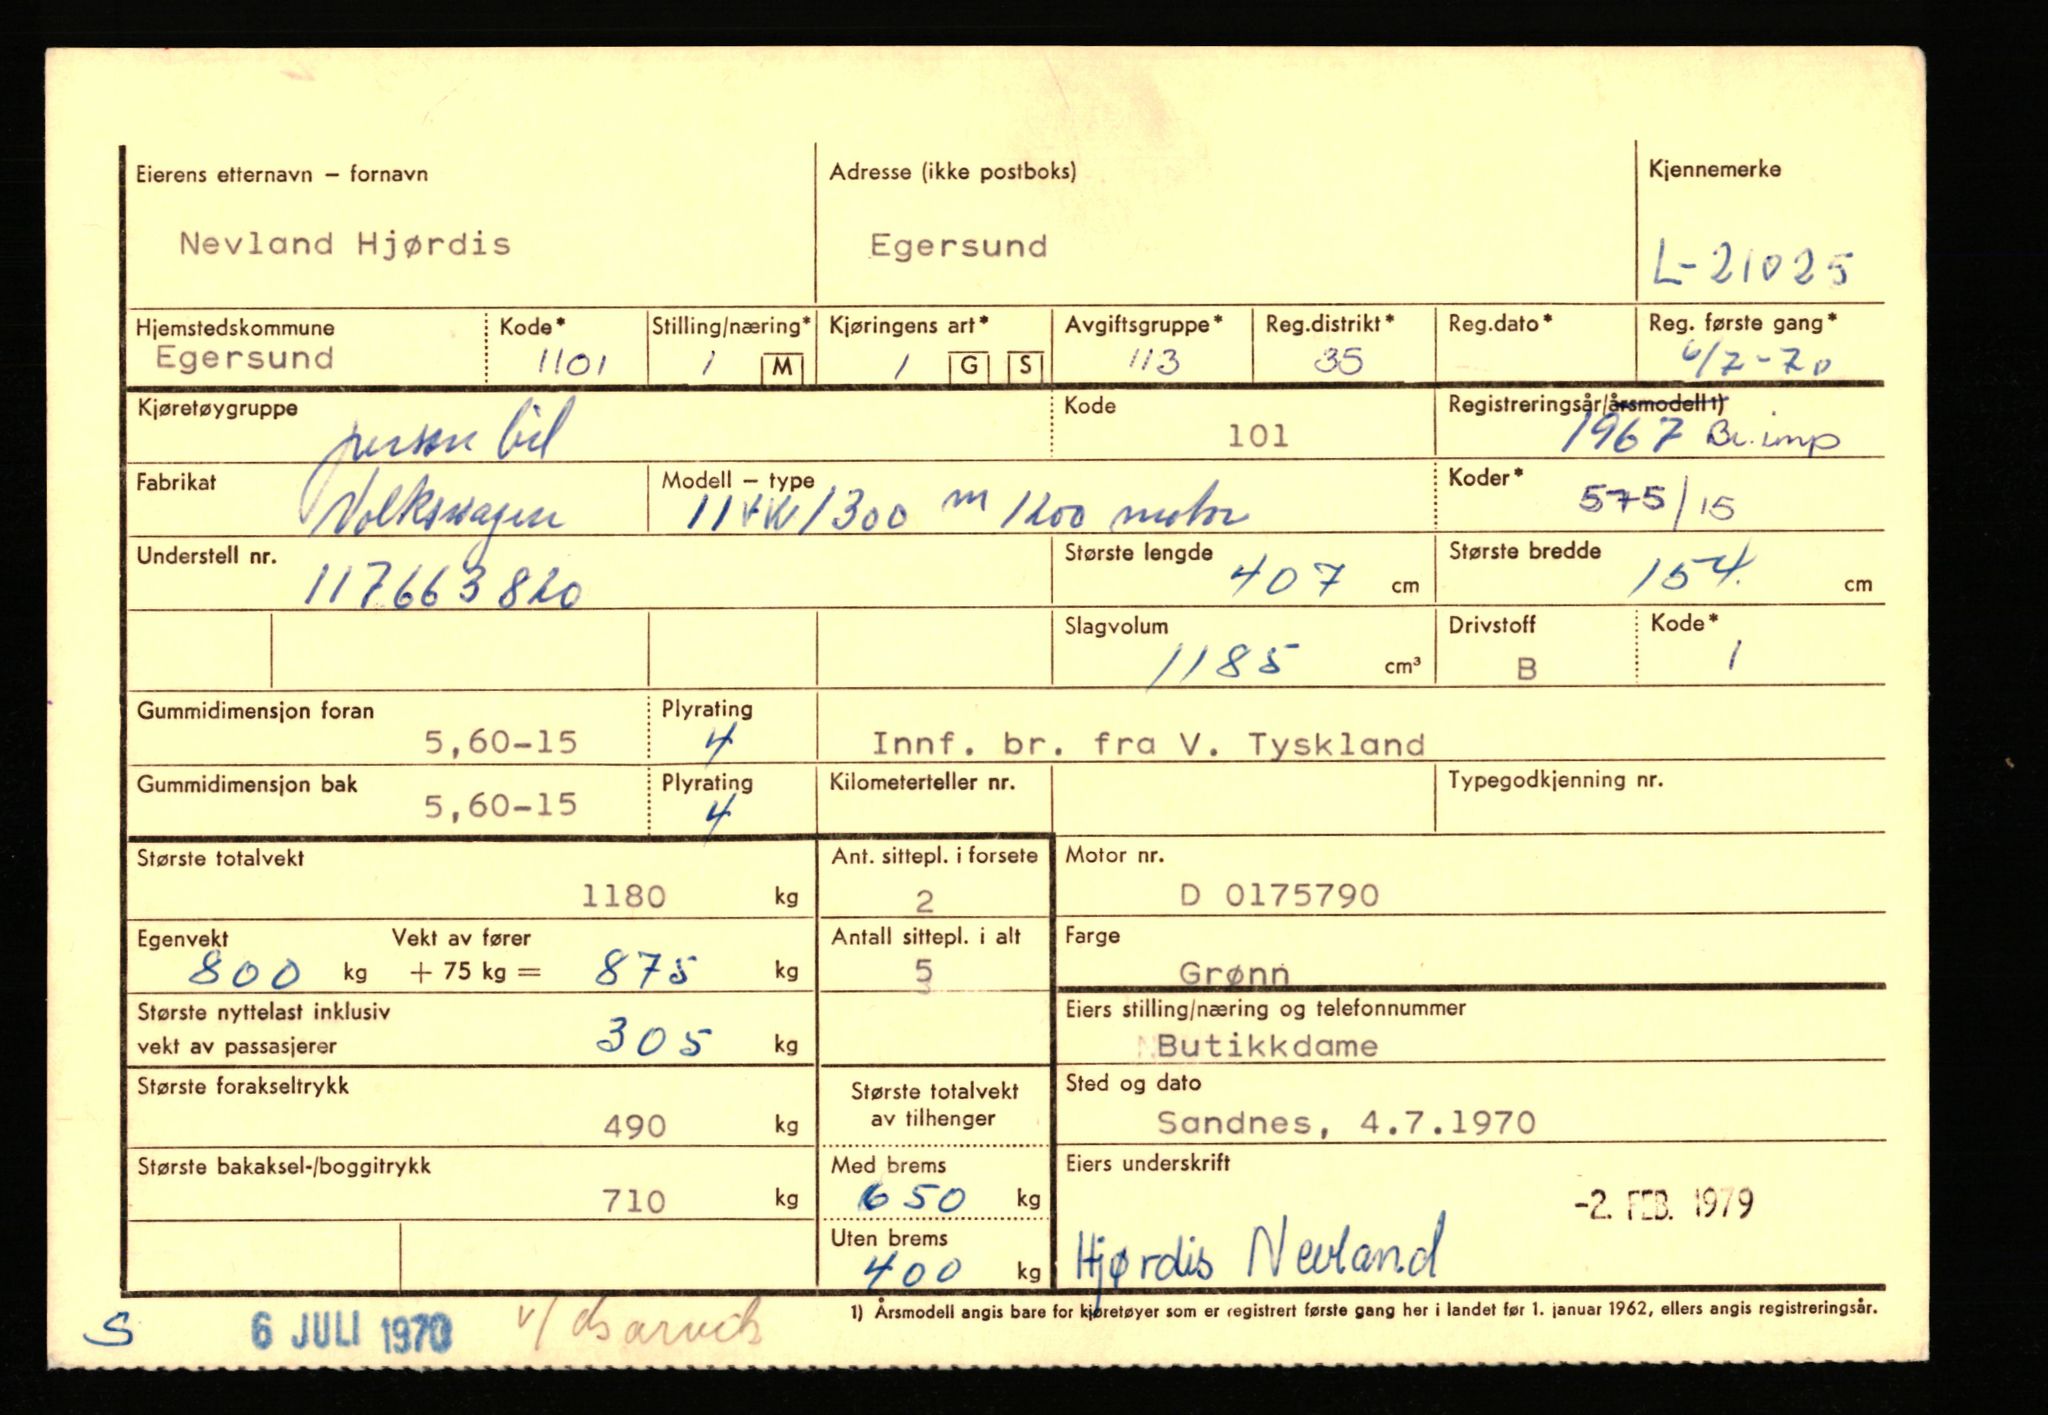 Eierens etternavn – fornavn Adresse (ikke postboks) Kjennemerke
Nevland Hjørdis Egersund L-21025
Hjemstedskommune Kode* Stilling/næring* Kjøringens art* Avgiftsgruppe* Reg.distrikt* Reg.dato* Reg. første gang*
Egersund 1101 1 M 1 G S 113 35 6/7-70
Kjøretøygruppe Kode Registreringsår/årsmodell 1)
person bil 101 1967 Br.imp
Fabrikat Modell – type Koder*
Volkswagen 1300 m 1200 motor 575/15
Understell nr. Største lengde Største bredde
117663820 407 cm 154 cm
Slagvolum Drivstoff Kode*
1185 cm³ B 1
Gummidimensjon foran Plyrating
5,60-15 4 Innf. br. fra V. Tyskland
Gummidimensjon bak Plyrating Kilometerteller nr. Typegodkjenning nr.
5,60-15 4
Største totalvekt Ant. sittepl. i forsete Motor nr.
1180 kg 2 D 0175790
Egenvekt Vekt av fører Antall sittepl. i alt Farge
800 kg + 75 kg = 875 kg 5 Grønn
Største nyttelast inklusiv Eiers stilling/næring og telefonnummer
vekt av passasjerer 305 kg Butikkdame
Største forakseltrykk Største totalvekt Sted og dato
490 kg av tilhenger Sandnes, 4.7.1970
Største bakaksel-/boggitrykk Med brems Eiers underskrift
710 kg 650 kg -2. FEB. 1979
Uten brems
400 kg Hjørdis Nevland
1) Årsmodell angis bare for kjøretøyer som er registrert første gang her i landet før 1. januar 1962, ellers angis registreringsår.
S 6 JULI 1970